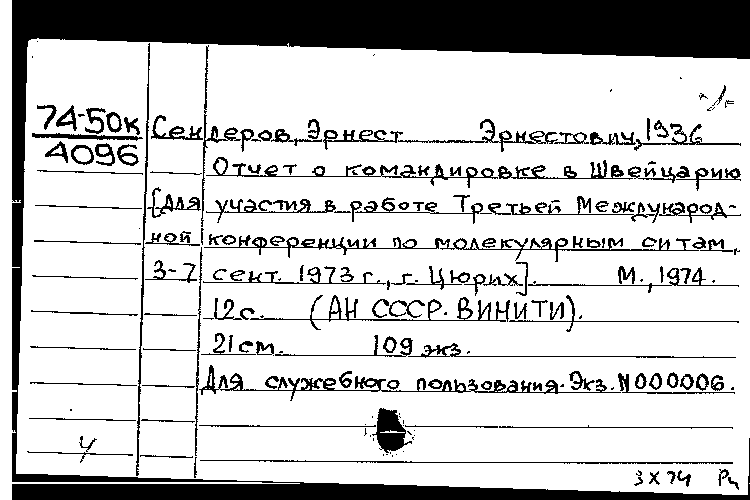 74-50к
4096
Сендеров, Эрнест Эрнестович, 1936
Отчет о командировке в Швейцарию
[Для участия в работе Третьей Международ-
ной конференции по молекулярным ситам,
3-7 сент. 1973 г., г. Цюрих]. М., 1974.
12 с. (АН СССР. ВИНИТИ).
21 см. 109 экз.
Для служебного пользования. Экз. N000006.
3 X 74